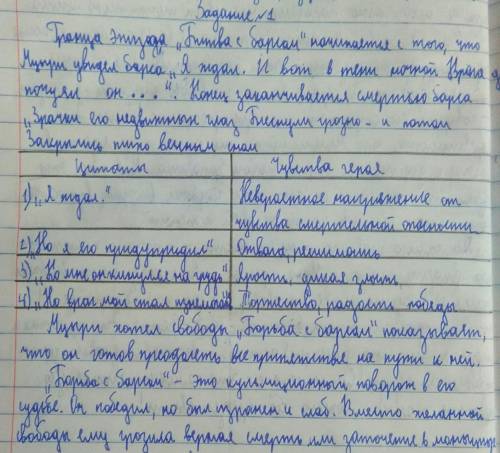 Задание №1
Граница эпизода „Битва с барсом" начинается с того, что
Мцыри увидел барса „Я ждал. И вот в тени ночной Врага
почуял он ....". Конец заканчивается смертью барса
„Зрачки его недвижных глаз Блеснули грозно - и потом
Закрылись тихо вечным сном
Цитаты Чувства героя
1) „Я ждал." Невероятное напряжение от
чувства смертельной опасности
2) „Но я его предупредил" Отвага, решимость
3) „Ко мне он кинулся на грудь" ярость, дикая злость
4) „Но враг мой стал изнемогать" Торжество, радость победы
Мцыри хотел свободы „Борьба с барсом" показывает,
что он готов преодолеть все припятствие на пути к ней.
„Борьба с барсом" - это кульмиционный поворот в его
судьбе. Он победил, но был изранен и слаб. Вместо желанной
свободы ему грозила верная смерть или заточение в